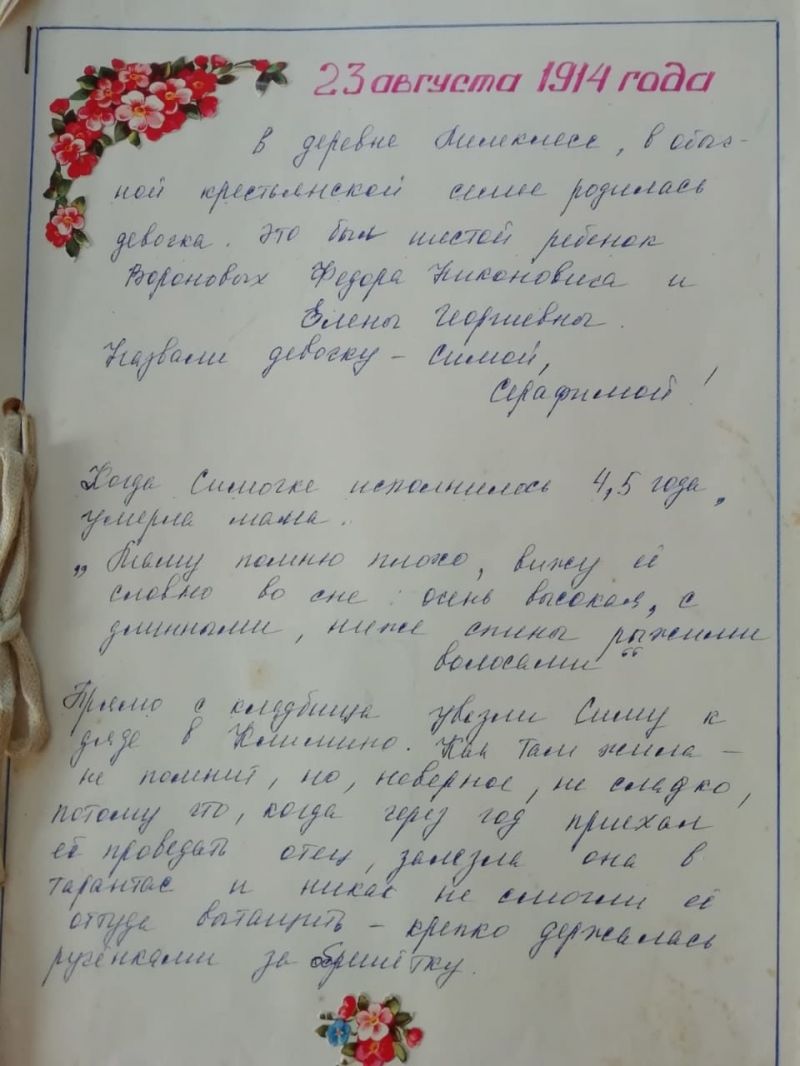 23 августа 1914 года
В деревне, в обыч-
ной крестьянской семье родилась
девочка. Это был шестой ребенок
Вороновых Федора Никоновича и
Елены Георгиевны.
Назвали девочку – Симой,
Серафимой!
Когда Симочке исполнилось 4,5 года,
умерла мама.
„Маму помню плохо, вижу её
словно во сне: очень высокая, с
длинными, ниже спины рыжими
волосами“
Прямо с кладбища увезли Симу к
дяде в Климино. Как там жила –
не помнит, но, наверное, не сладко,
потому что, когда через год приехал
её проведать отец, залезла она в
тарантас и никак не смогли её
оттуда вытащить – крепко держалась
ручёнками за решётку.